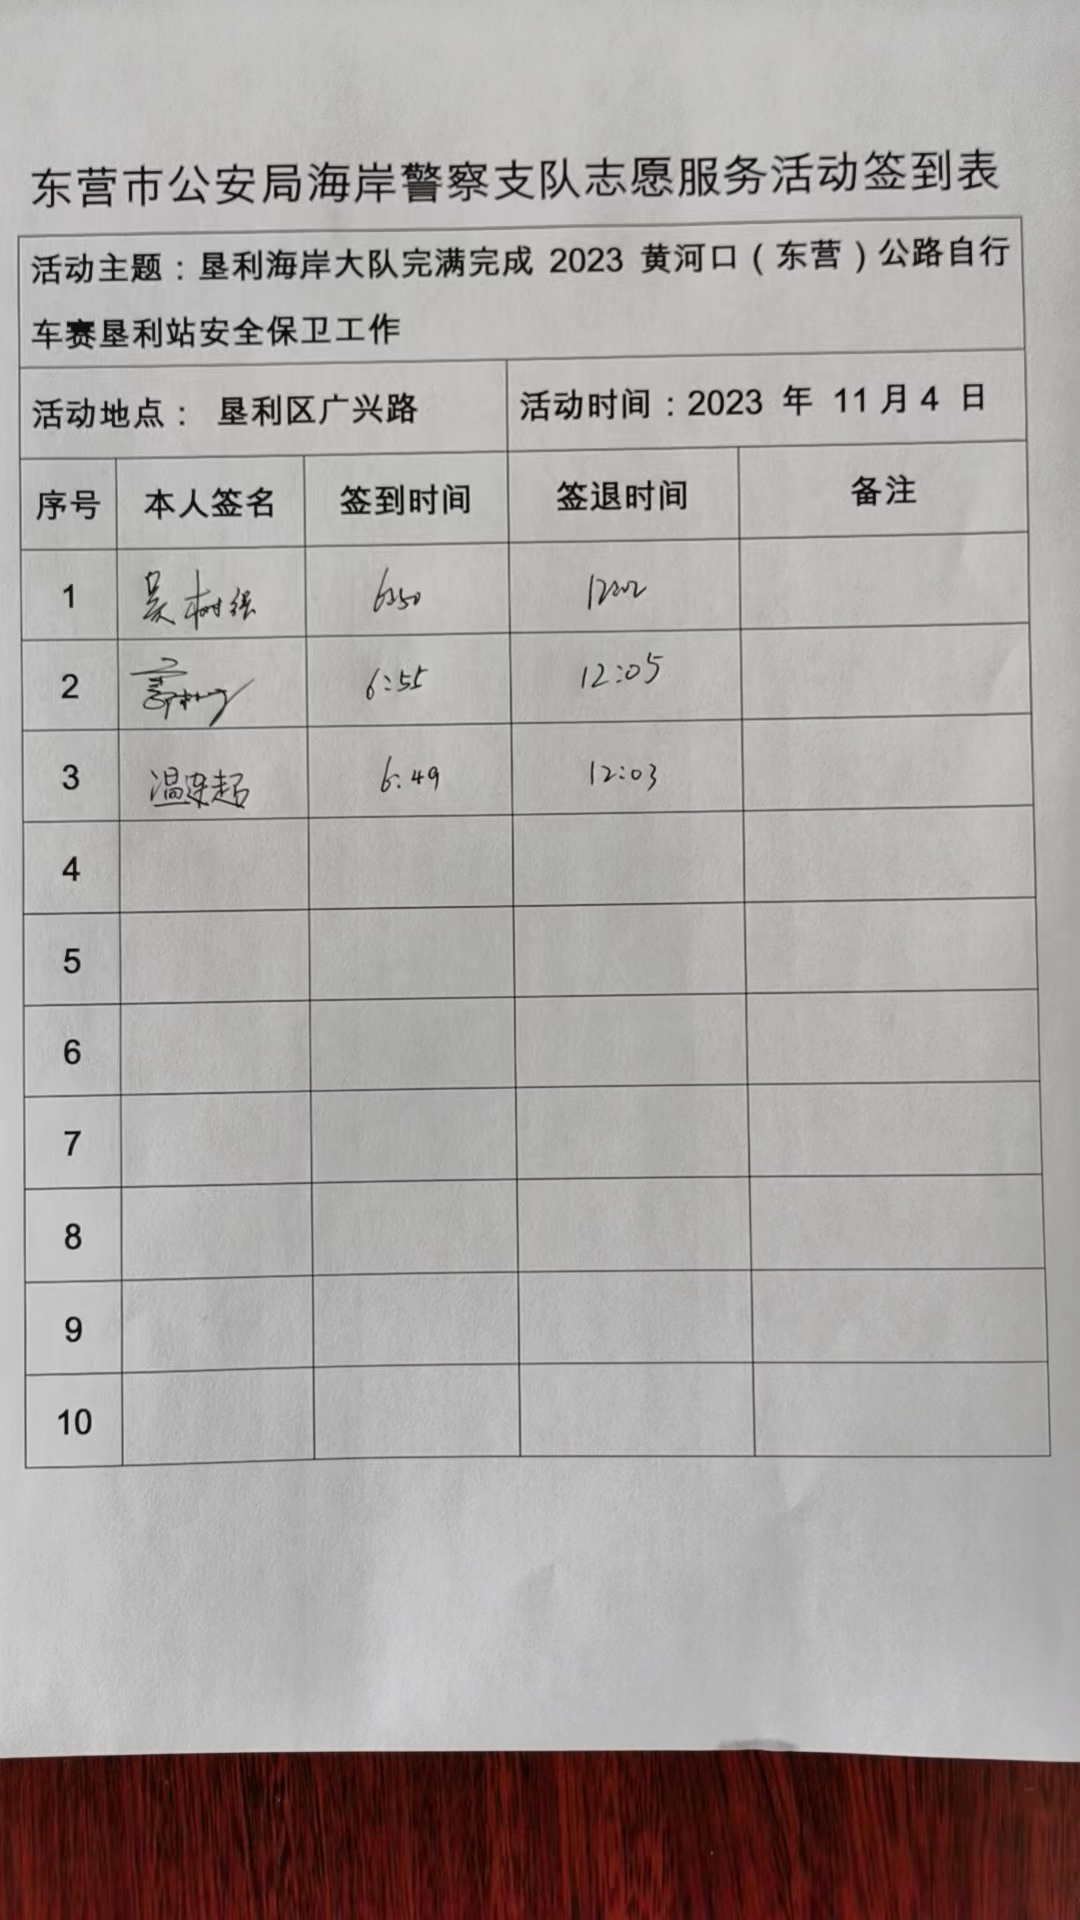 东营市公安局海岸警察支队志愿服务活动签到表
活动主题：垦利海岸大队完满完成 2023 黄河口（东营）公路自行
车赛垦利站安全保卫工作
活动地点： 垦利区广兴路 活动时间：2023 年 11月4 日
序号 本人签名 签到时间 签退时间 备注
1 吴树强 6:50 12:02
2 6:55 12:05
3 温连超 6:49 12:03
4
5
6
7
8
9
10